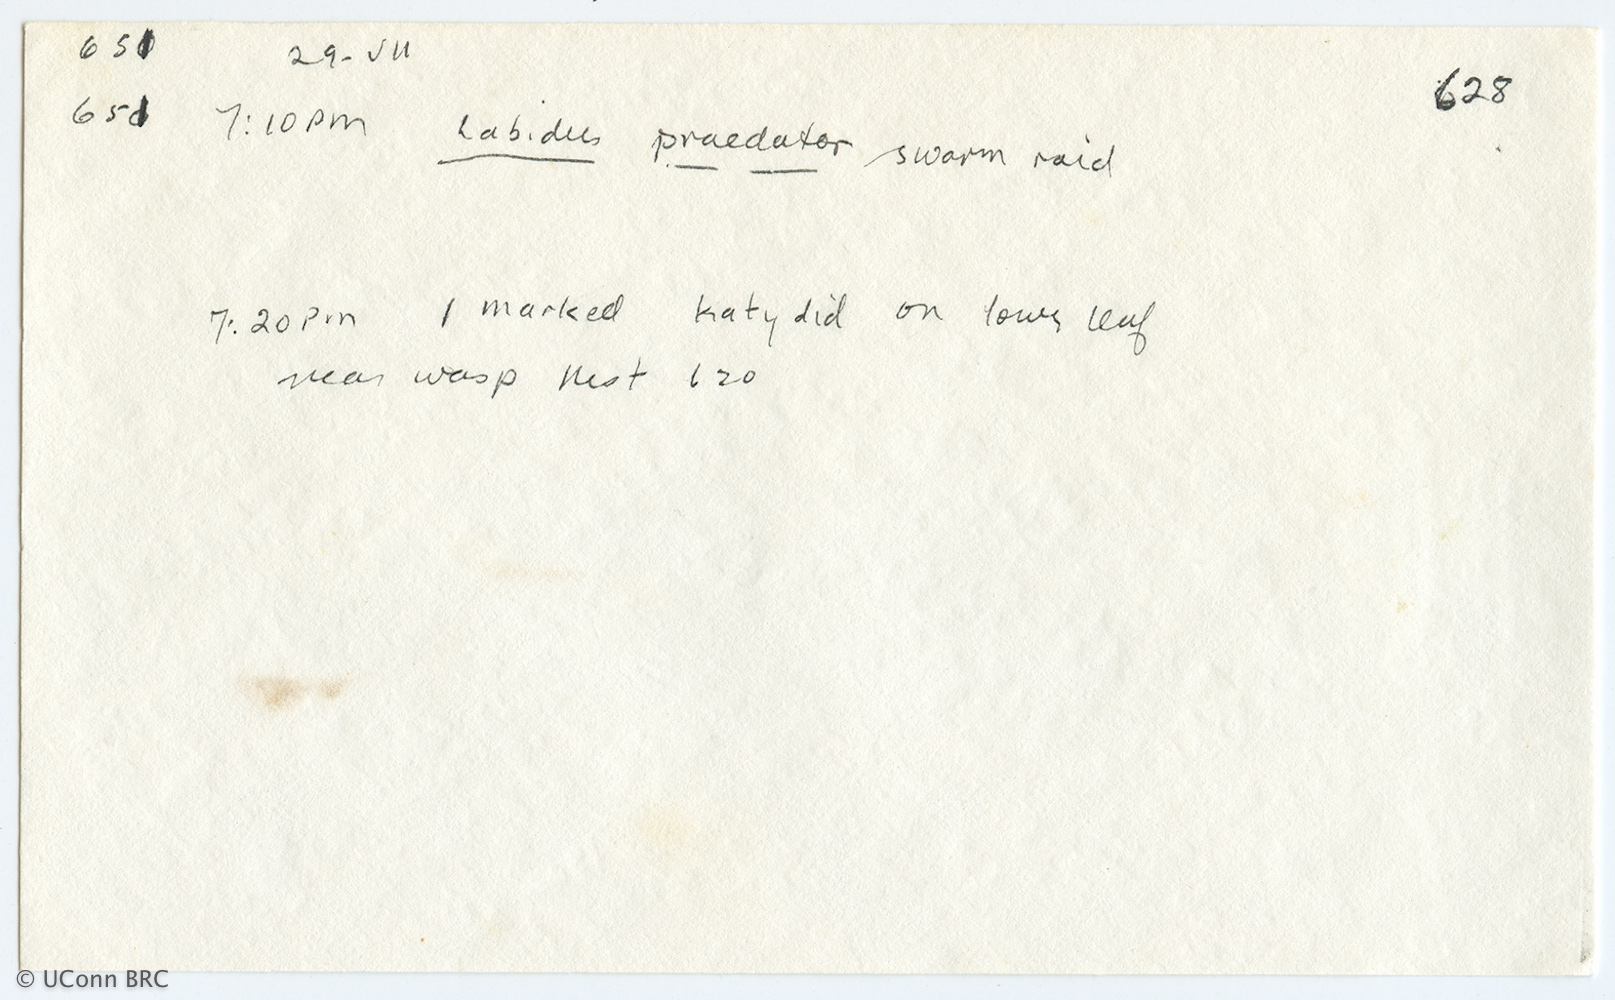 651 29-VII
628
651 7:10 pm Labidus praedator swarm raid
7:20 pm 1 marked katydid on lower leaf
near wasp nest 620
© UConn BRC